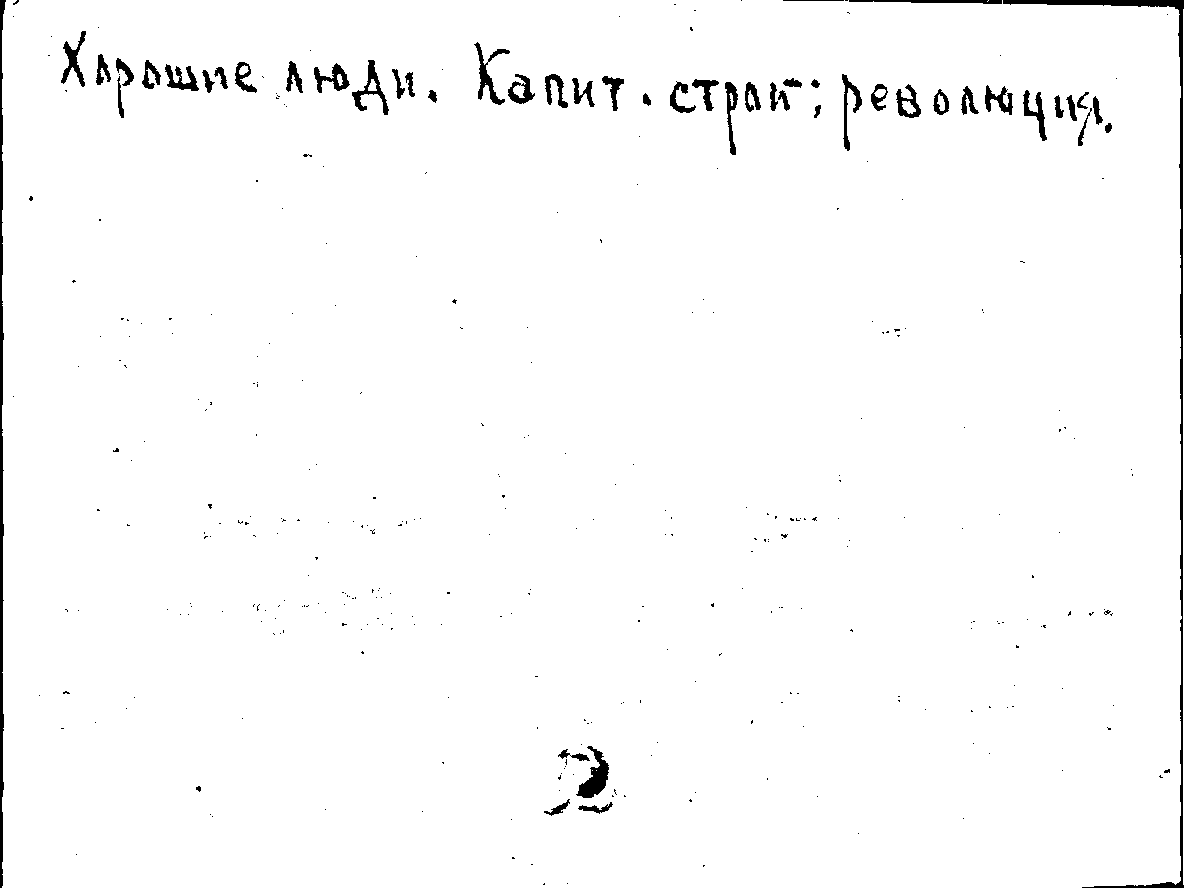 Хорошие люди. Капит. строй; революция.